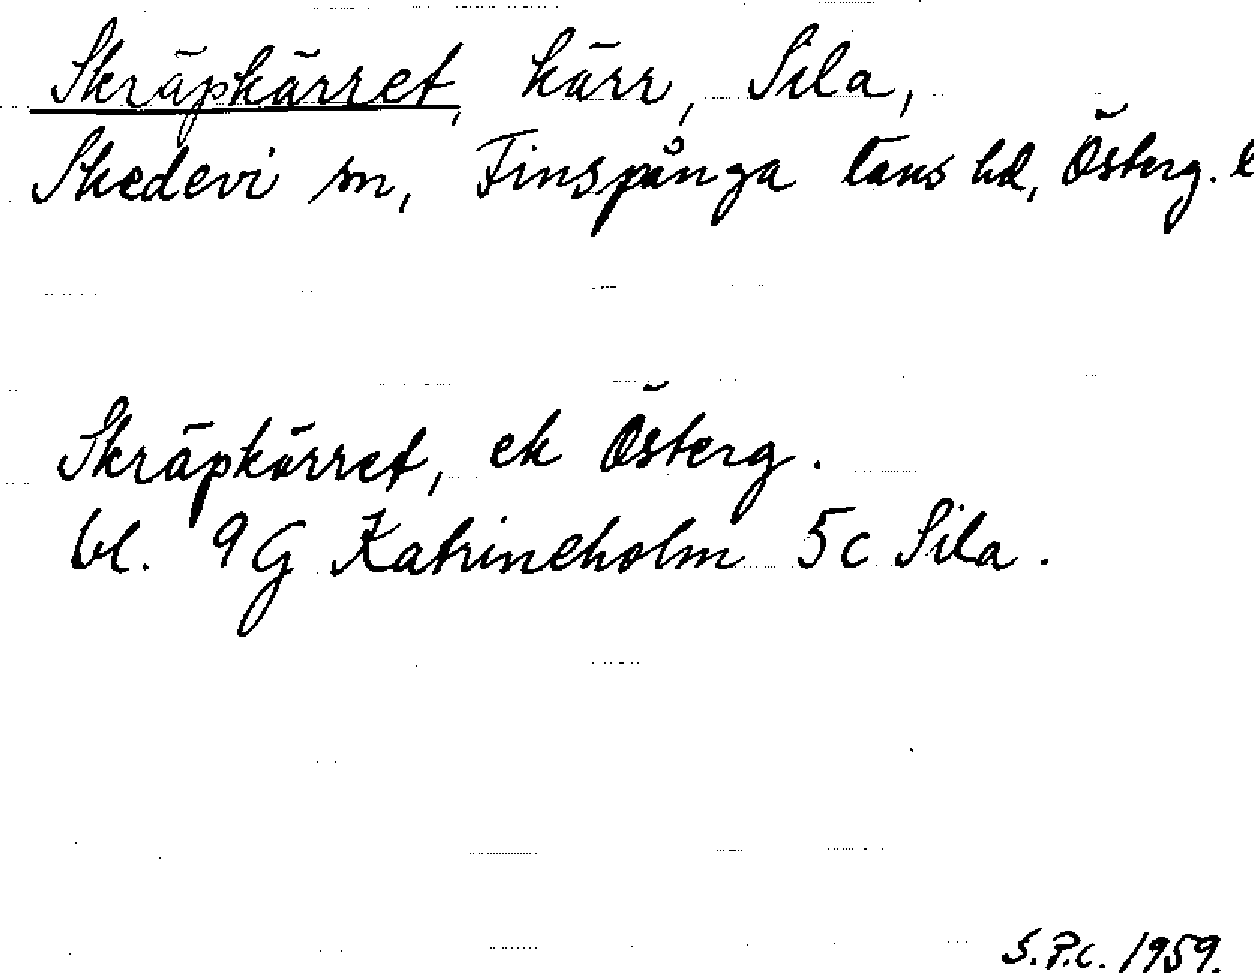 Skräpkärret, kärr, Sila,
Skedevi sn, Finspånga läns hd, Österg. l
Skräpkärret, ek Österg.
bl. 9G Katrineholm 5c Sila.
S.P.C. 1959.